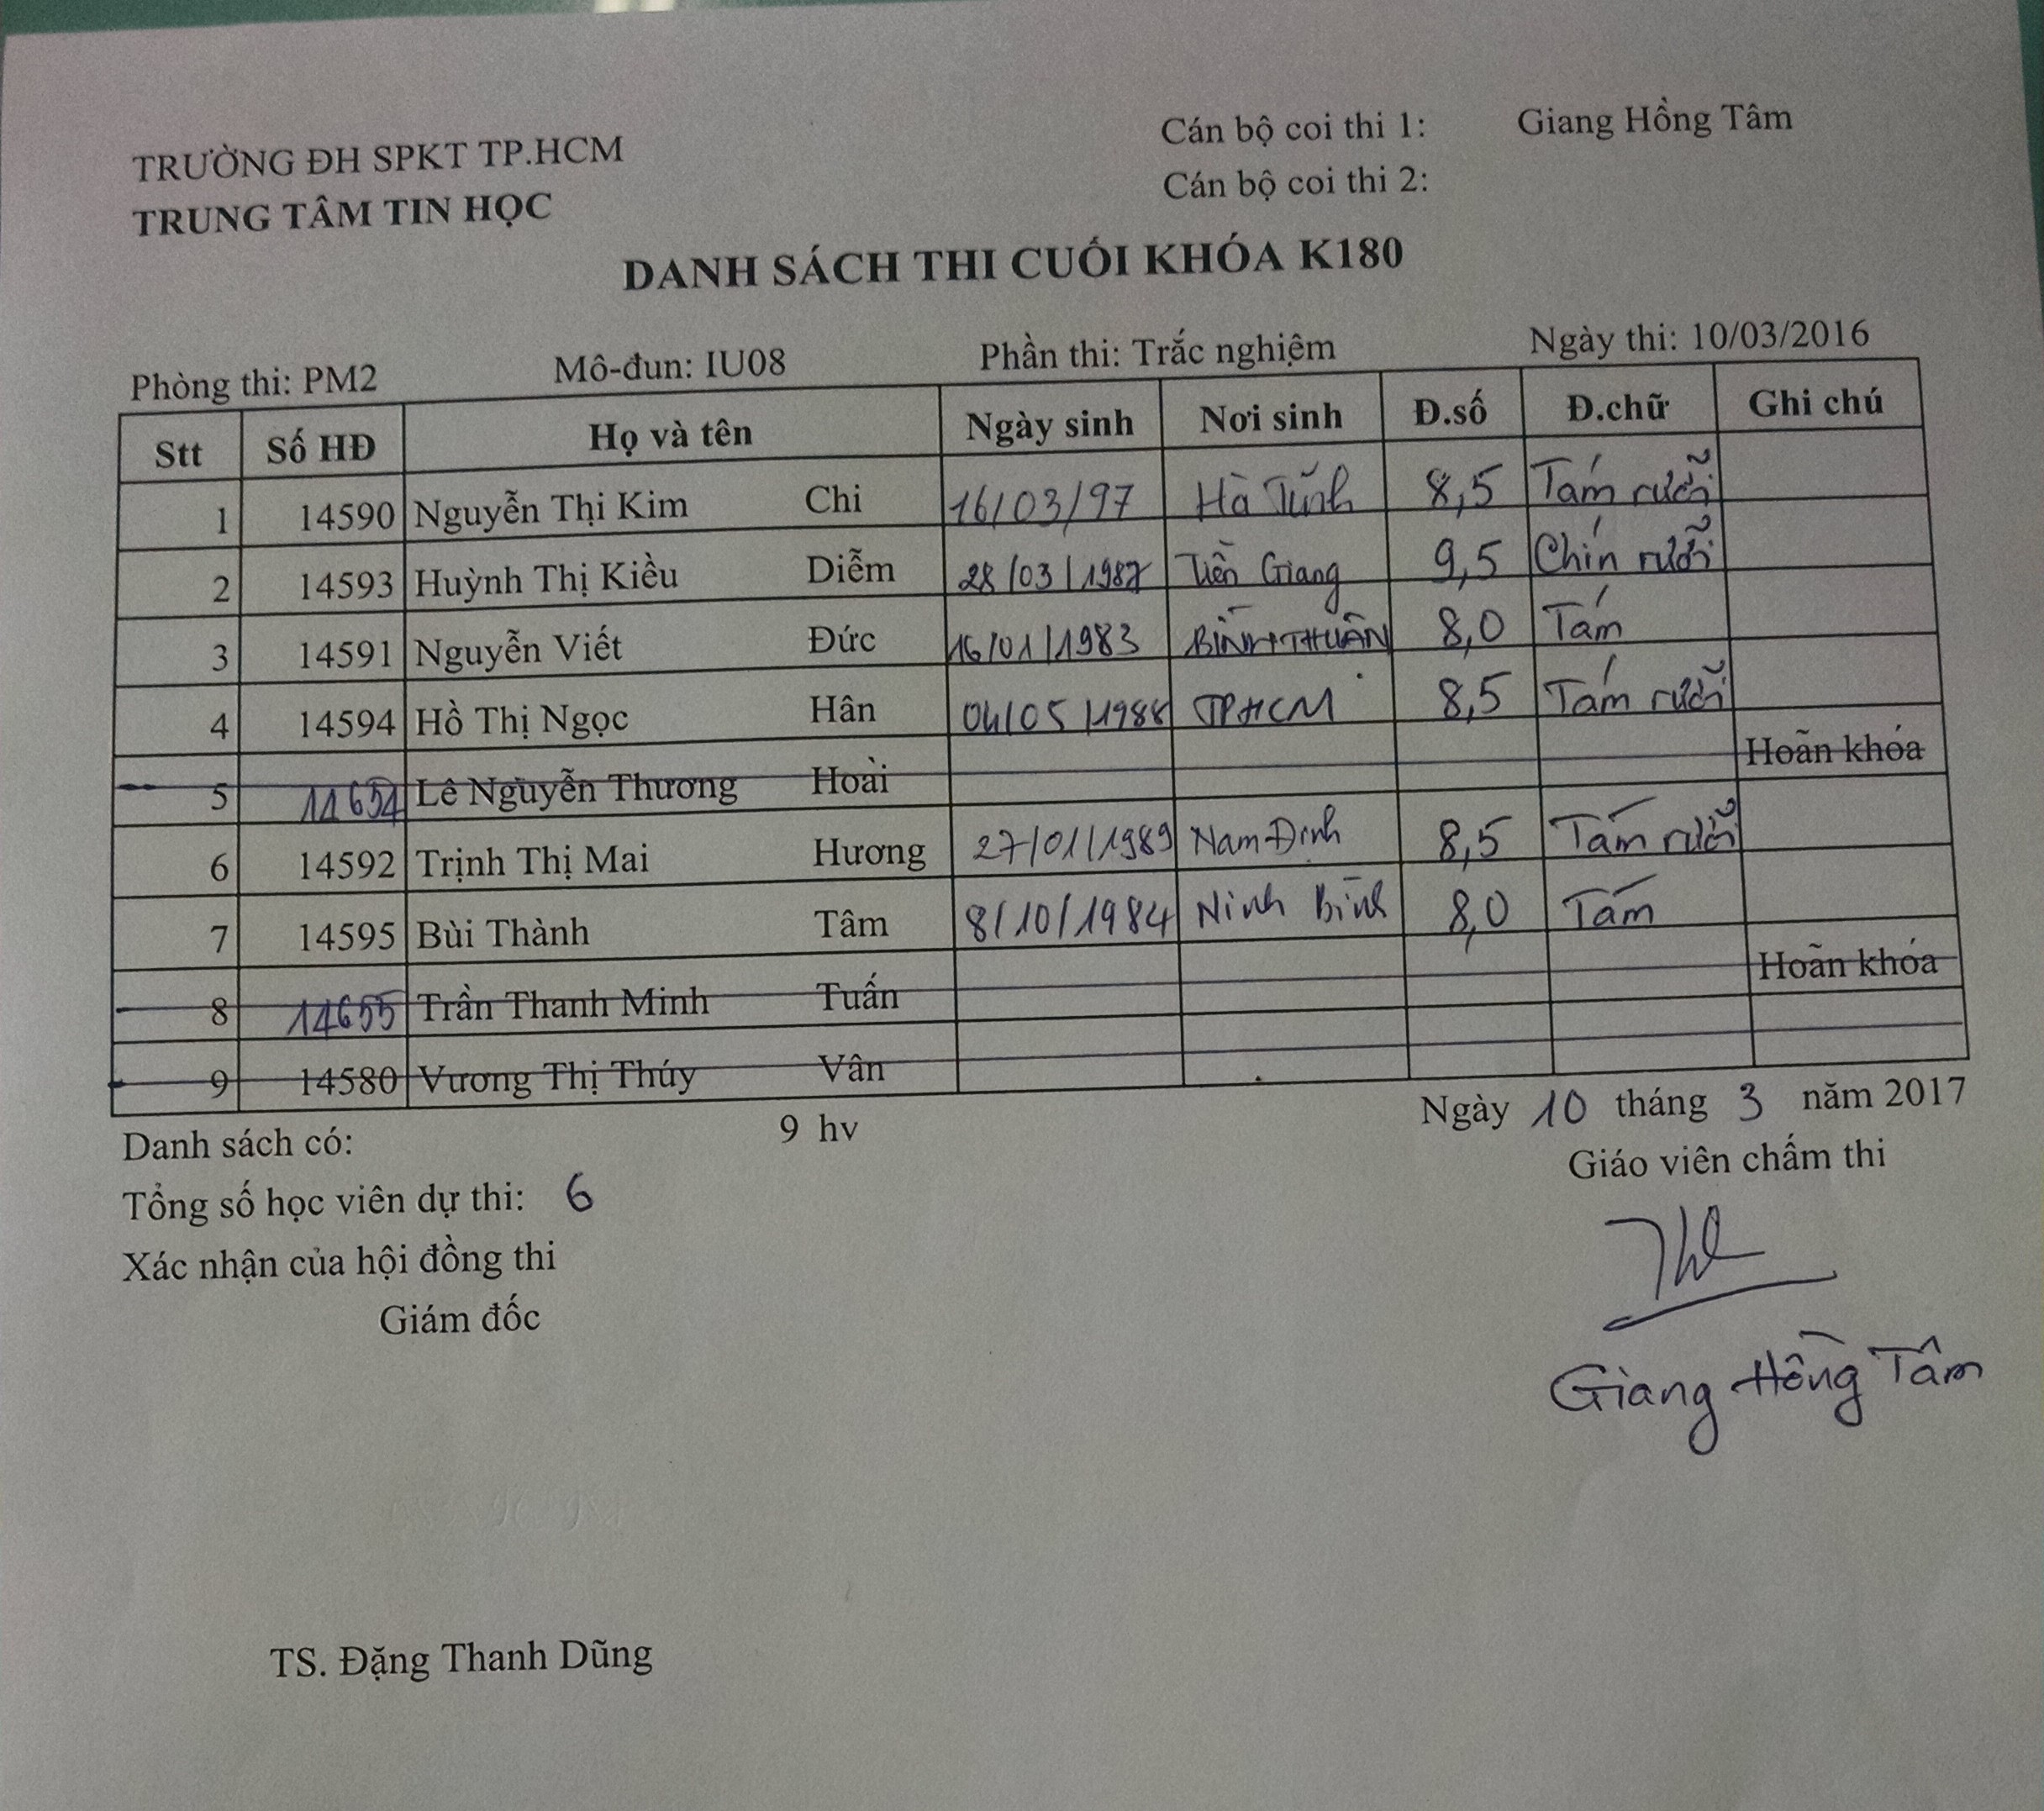 TRƯỜNG ĐH SPKT TP.HCM
TRUNG TÂM TIN HỌC
Cán bộ coi thi 1: Giang Hồng Tâm
Cán bộ coi thi 2:
DANH SÁCH THI CUỐI KHÓA K180
Phòng thi: PM2 Mô-đun: IU08 Phần thi: Trắc nghiệm Ngày thi: 10/03/2016
Stt Số HĐ Họ và tên Ngày sinh Nơi sinh Đ.số Đ.chữ Ghi chú
1 14590 Nguyễn Thị Kim Chi 16/03/97 Hà Tĩnh 8,5 Tám rưỡi
2 14593 Huỳnh Thị Kiều Diễm 28/03/1987 Tiền Giang 9,5 Chín rưỡi
3 14591 Nguyễn Viết Đức 16/01/1983 BÌNH THUẬN 8,0 Tám
4 14594 Hồ Thị Ngọc Hân 04/05/1988 TPHCM 8,5 Tám rưỡi
5 Lê Nguyễn Thương Hoài Hoãn khóa
6 14592 Trịnh Thị Mai Hương 27/01/1989 Nam Định 8,5 Tám rưỡi
7 14595 Bùi Thành Tâm 8/10/1984 Ninh Bình 8,0 Tám
8 14655 Trần Thanh Minh Tuấn Hoãn khóa
9 14580 Vương Thị Thúy Vân
Danh sách có: 9 hv
Ngày 10 tháng 3 năm 2017
Tổng số học viên dự thi: 6
Giáo viên chấm thi
Xác nhận của hội đồng thi
Giám đốc
Giang Hồng Tâm
TS. Đặng Thanh Dũng